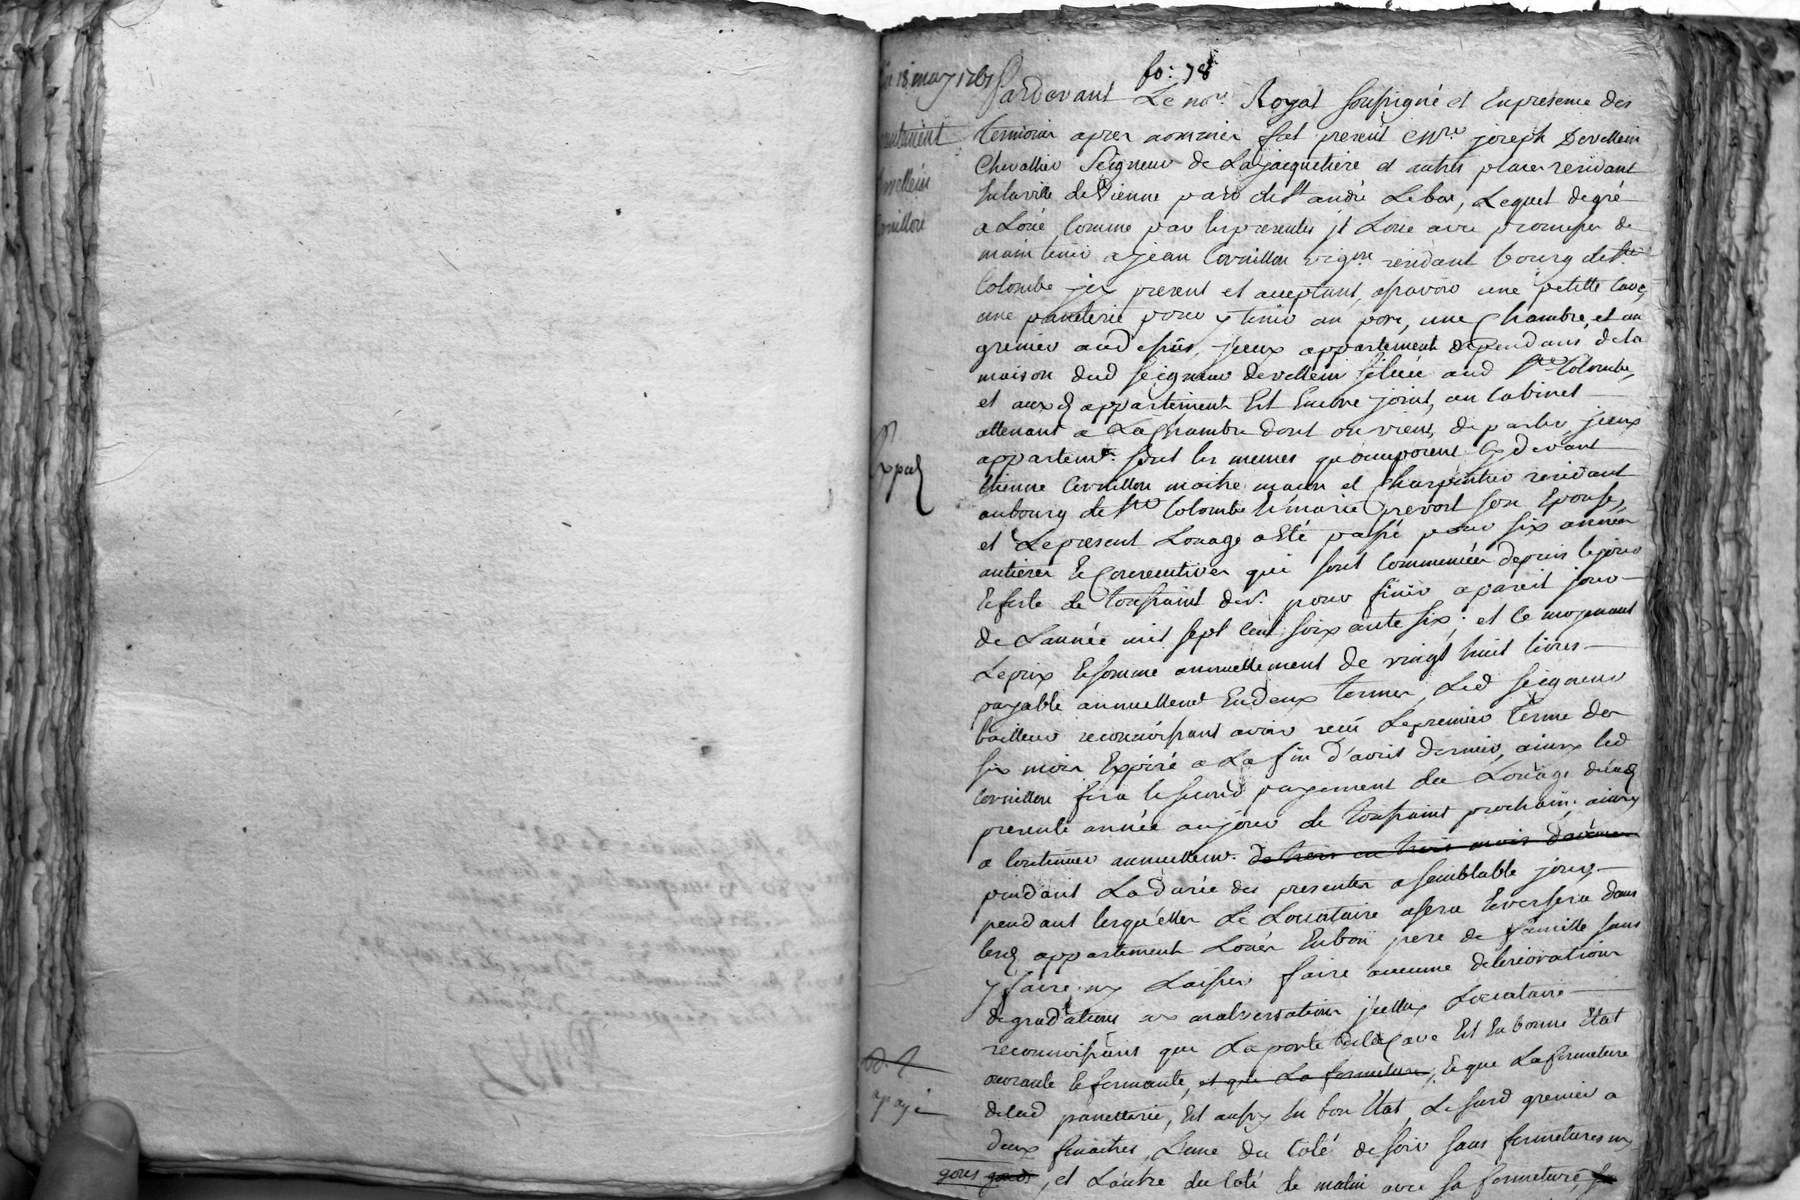 fo: 78
18 may 1761
Pardevant Le nore. Royal soussigné et En presence des
temoins apres nommés fut present Mre joseph Devellein
Chevallier Seigneur de La jacquetiere et autres places residant
En la ville de Vienne parr de st andré Le bas, Lequel de gré
a Loué comme par les presentes jl Loue avec promesse de
maintenir a jean Cornillon vigon residant bourg de ste
Colombe jcy present et acceptant, asavoir une petitte Cave,
une panetterie pour y tenir un porc, une Chambre, et un
grenier aud essus, jceux appartement dependans de la
maison dud seigneur devellein située aud ste Colombe,
et auxd appartement Est Encore joint, un Cabinet
attenant a La Chambre dont on vient de parler, jceux
appartemts. sont les memes qu'occupoient Cy devant
Etienne Cornillon maitre macon et Charpentier residant
au bourg de ste Colombe Et marie prevost son Epouse,
et Le present Louage a Eté passé pour six années
antieres Et Consecutives qui sont Commencées depuis le jour
Et feste de toussaint der. pour finir a pareil jour
de L'année mil sept cent soixante six; et Ce moyenant
Le prix Et somme annuellement de vingt huit livres
payable annuellemt En deux termes, Led seigneur
bailleur reconnoissant avoir reçu Le premier terme des
six mois Expiré a La fin d'avril dernier, ainsy led
Cornillon fera le second payement du Louage de lad
presente année au jour de toussaint prochain; ainsy
a continuer annuellemt. de trois en trois mois d'avance
pendant La durée des presentes a semblable jour,
pendant lesquelles Le Locataire usera Et versera dans
lesd appartement Loués En bon pere de famille sans
y faire ny Laisser faire aucune deteriorations
degradations ny malversations jcelluy Locataire
reconnoissant que La porte de la Cave Est En bonne Etat
ouvrante Et fermante, et que La fermeture, Et que La fermeture
de lad panetterie, Est aussy En bon Etat, Le surd grenier a
deux fenaitres, L'une du Coté de soir sans fermetures ny
gons gonds, et L'autre du Coté de matin avec sa fermeture,
Devellein
Cornillon
Exped
a payé